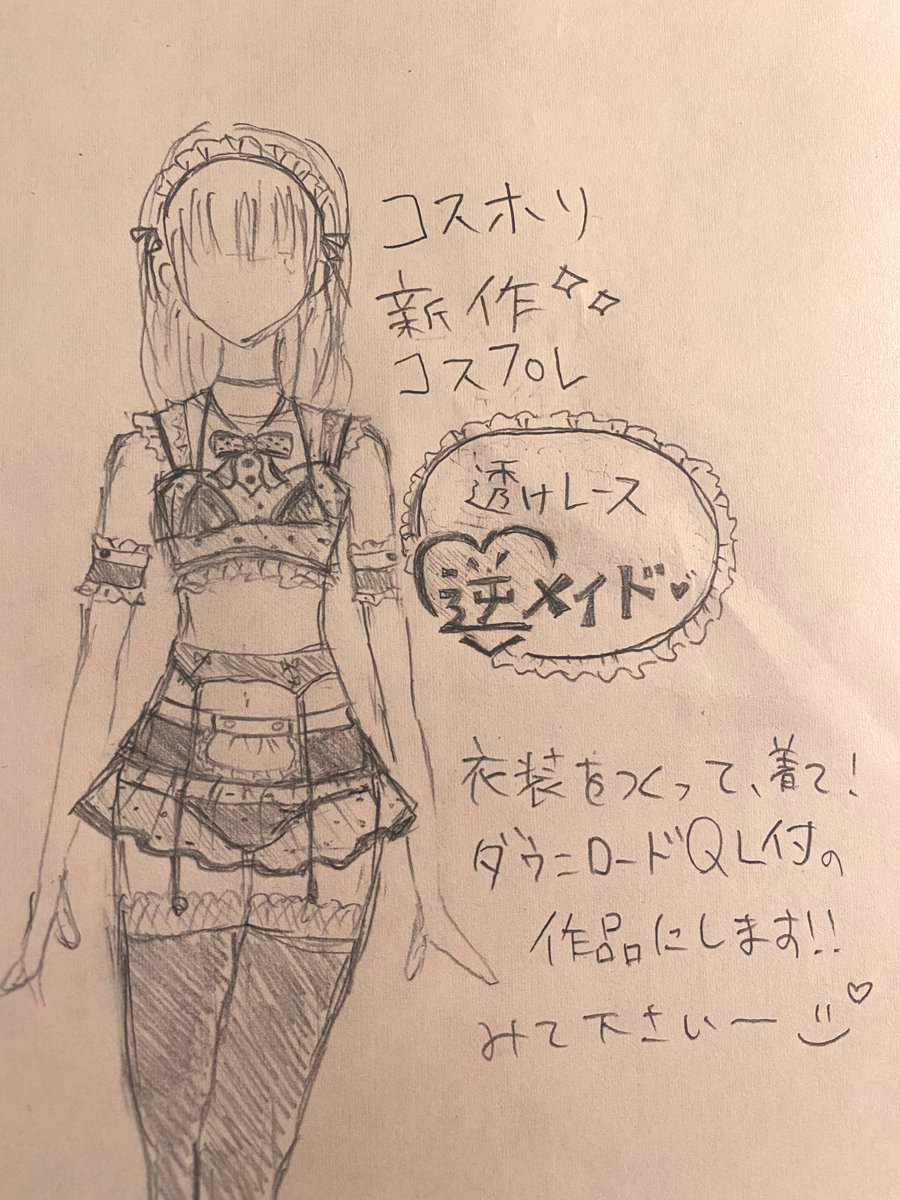 コスホリ
新作
コスプレ
透けレース
逆メイド
衣装をつくって、着て!
ダウニロードQL付の
作品にします!!
みて下さいー